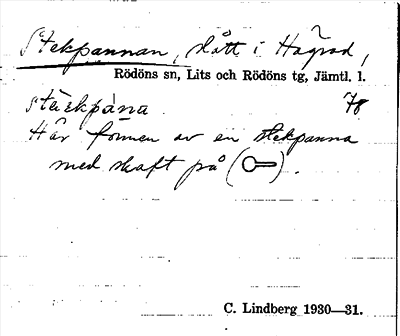 Stekpannan, slått i Hägred,
Rödöns sn, Lits och Rödöns tg, Jämtl. l.
stäckpàna. 78
Har formen av en stekpanna
med skaft på ( ).
C. Lindberg 1930—31.